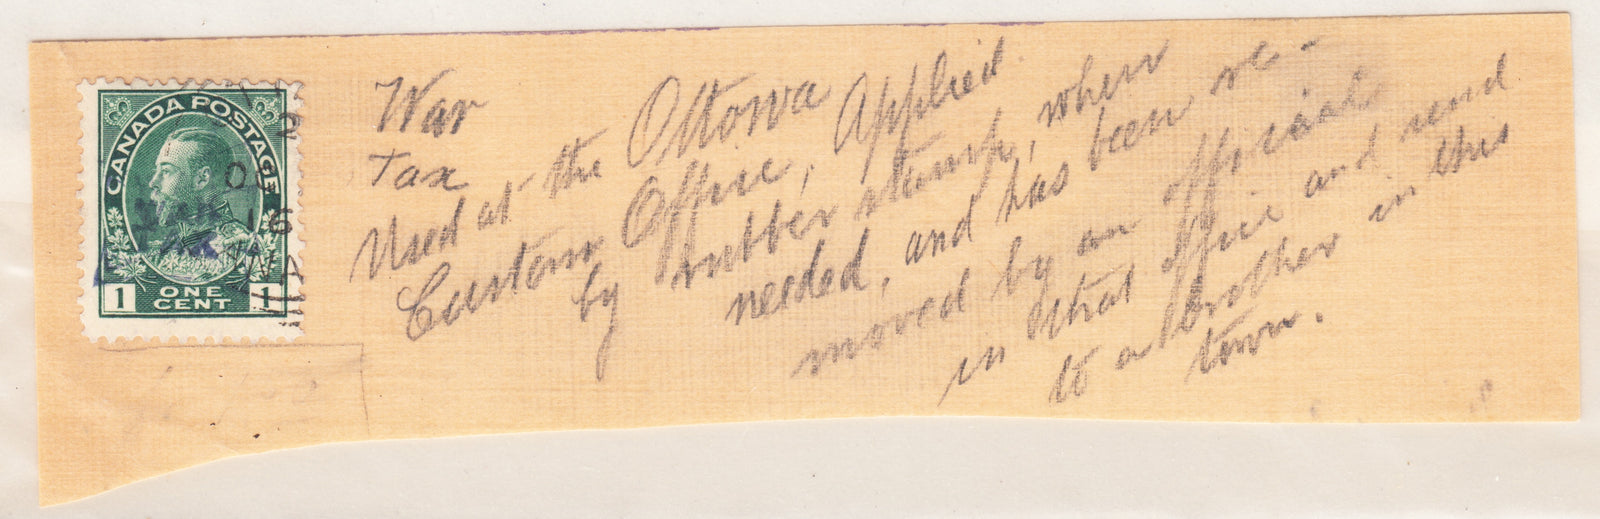 CANADA POSTAGE
2
16
1 ONE CENT 1
War
Tax
Used at the Ottawa
Custom Office, Applied
by rubber stamp, when
needed, and has been re-
moved by an official
in that office and send
to a brother in this
town.